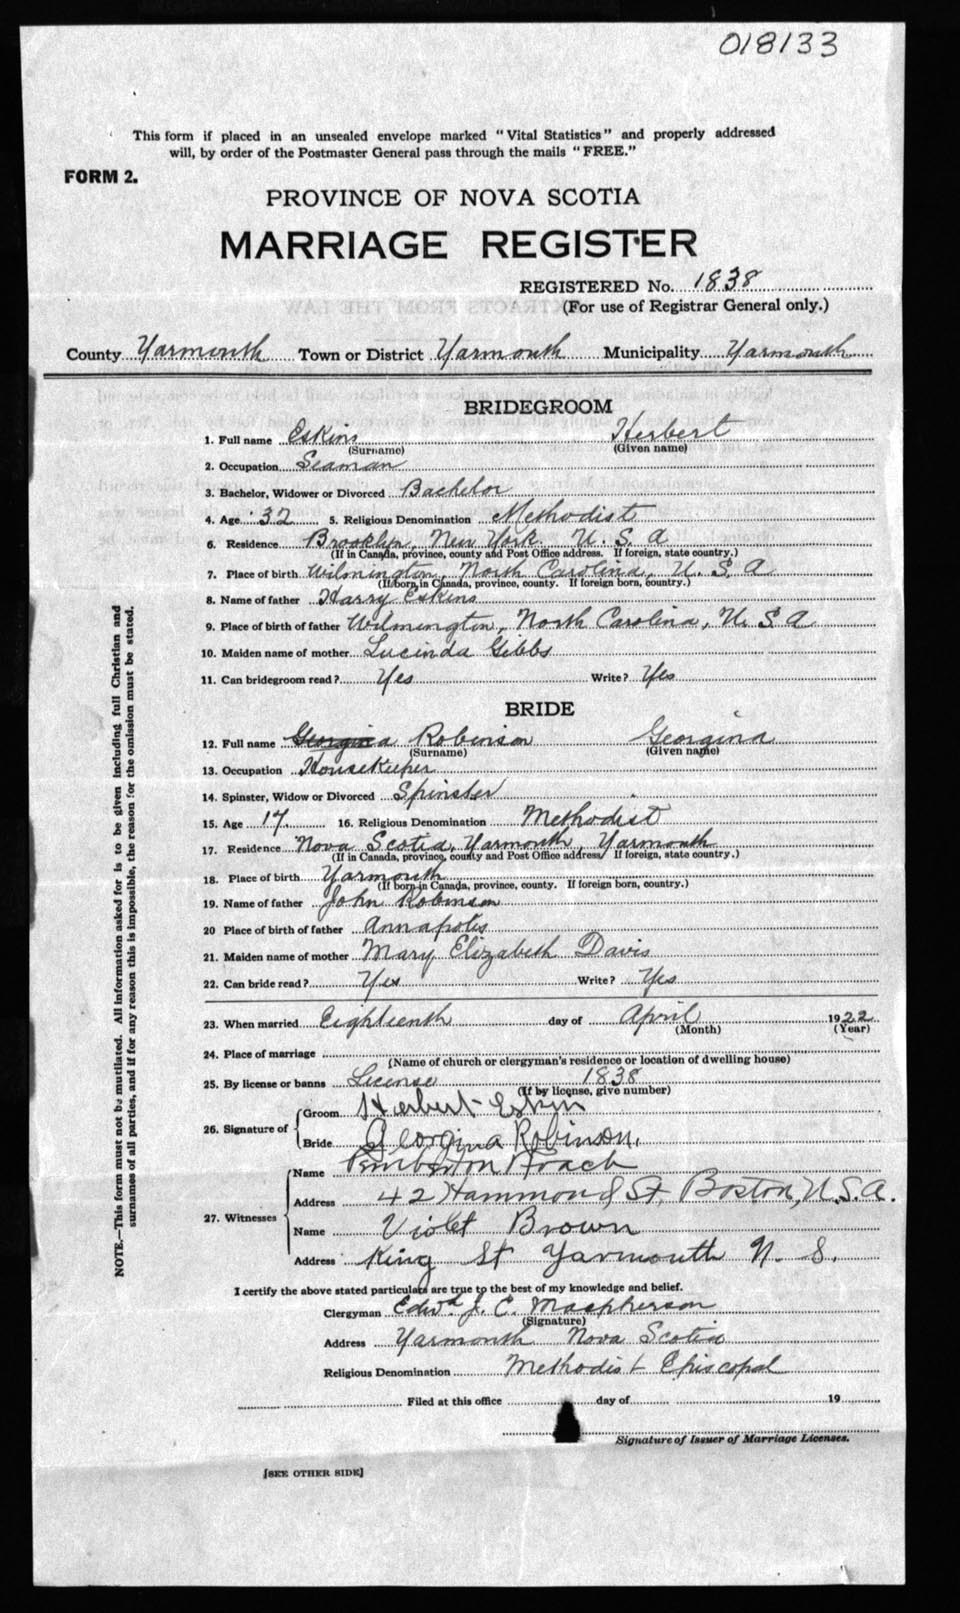 018133
This form if placed in an unsealed envelope marked "Vital Statistics" and properly addressed
will, by order of the Postmaster General pass through the mails "FREE."
FORM 2.
PROVINCE OF NOVA SCOTIA
MARRIAGE REGISTER
REGISTERED No. 1838
(For use of Registrar General only.)
County Yarmouth Town or District Yarmouth Municipality Yarmouth
BRIDEGROOM
1. Full name Eskins Herbert
(Surname) (Given name)
2. Occupation Seaman
3. Bachelor, Widower or Divorced Bachelor
4. Age 32 5. Religious Denomination Methodist
6. Residence Brooklyn, New York. U. S. A
(If in Canada, province, county and Post Office address. If foreign, state country.)
7. Place of birth Wilmington, North Carolina, U. S. A
(If born in Canada, province, county. If foreign born, country.)
8. Name of father Harry Eskins
9. Place of birth of father Wilmington, North Carolina, U. S A
10. Maiden name of mother Lucinda Gibbs
11. Can bridegroom read? Yes Write? Yes
BRIDE
12. Full name Georgina Robinson Georgina
(Surname) (Given name)
13. Occupation Housekeeper
14. Spinster, Widow or Divorced Spinster
15. Age 17. 16. Religious Denomination Methodist
17. Residence Nova Scotia, Yarmouth, Yarmouth
(If in Canada, province, county and Post Office address. If foreign, state country.)
18. Place of birth Yarmouth
(If born in Canada, province, county. If foreign born, country.)
19. Name of father John Robinson
20 Place of birth of father Annapolis
21. Maiden name of mother Mary Elizabeth Davis
22. Can bride read? Yes Write? Yes
23. When married Eighteenth day of April 1922
(Month) (Year)
24. Place of marriage
(Name of church or clergyman's residence or location of dwelling house)
25. By license or banns License 1838
(If by license, give number)
26. Signature of
Groom Herbert Eskin
Bride Georgina Robinson.
27. Witnesses
Name Pemberton Roach
Address 42 Hammond St. Boston, U.S.A.
Name Violet Brown
Address King St Yarmouth N. S.
I certify the above stated particulars are true to the best of my knowledge and belief.
Clergyman Edwd J. C. Macpherson
(Signature)
Address Yarmouth Nova Scotia
Religious Denomination Methodist Episcopal
Filed at this office day of 19
Signature of Issuer of Marriage Licenses.
[SEE OTHER SIDE]
NOTE.—This form must not be mutilated. All information asked for is to be given including full Christian and
surnames of all parties, and if for any reason this is impossible, the reason for the omission must be stated.